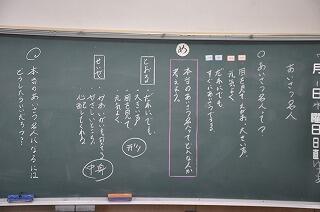 月 日 水曜日 日直
あいさつ名人
○あいさつ名人って?
目を見て えがお 大きい声
元気よく
だれにでも
すぐにあいさつできる
め
本当のあいさつ名人ってどんな人か
考えよう。
とおる
・だれにでも
・大きい声
目を見て
元気よく
せいや
やさしいところも
中身
○本当のあいさつ名人になるには
どうしたらいいだろう?